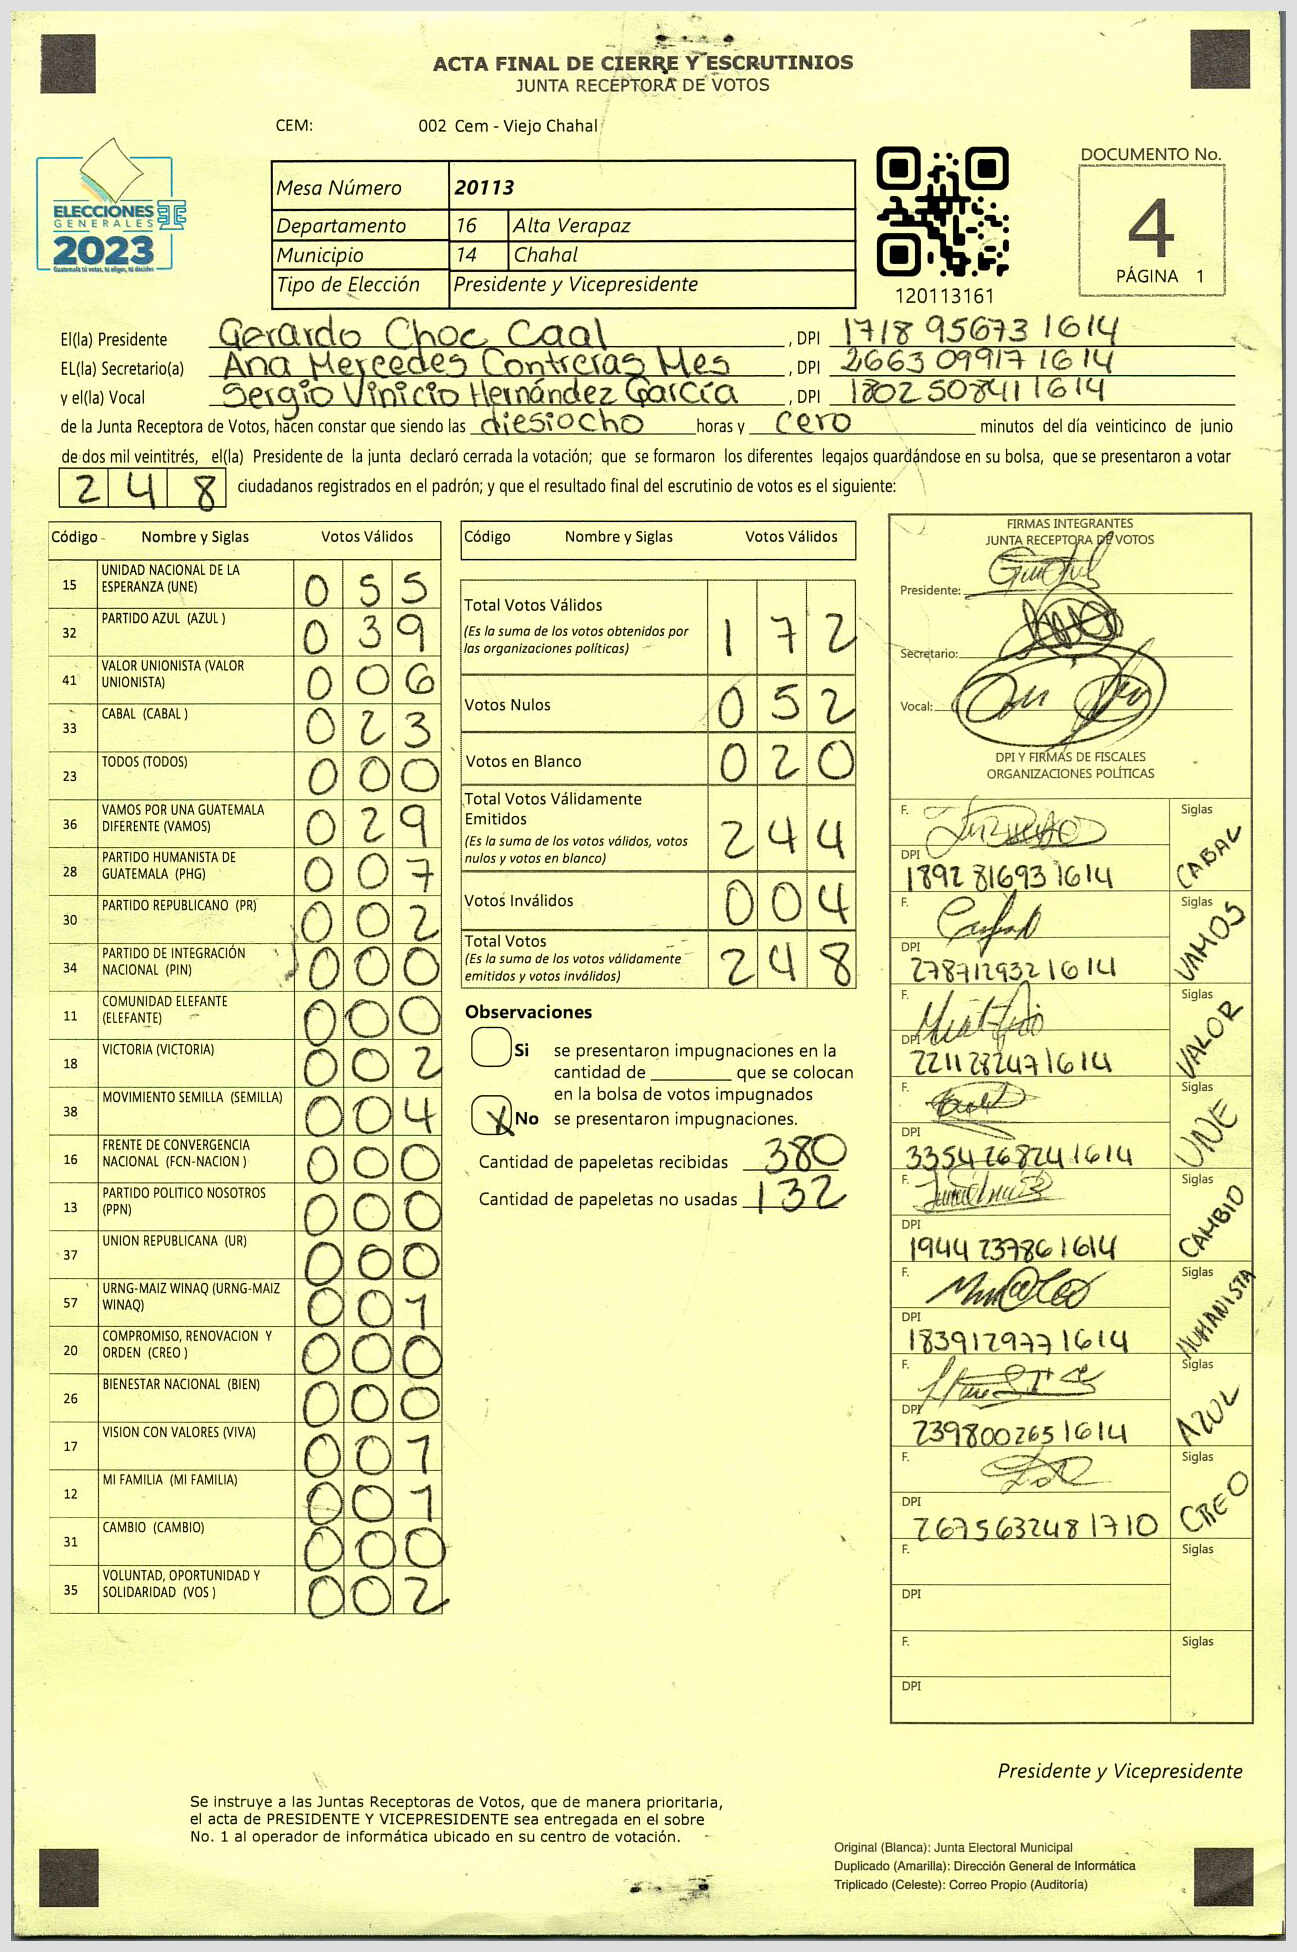 ACTA FINAL DE CIERRE Y ESCRUTINIOS
JUNTA RECEPTORA DE VOTOS
CEM: 002 Cem - Viejo Chahal
ELECCIONES
GENERALES
2023
Guatemala tú votas, tú eliges, tú decides
Mesa Número 20113
Departamento 16 Alta Verapaz
Municipio 14 Chahal
Tipo de Elección Presidente y Vicepresidente
120113161
DOCUMENTO No.
4
PÁGINA 1
El(la) Presidente Gerardo Choc Caal , DPI 1718 95673 1614
EL(la) Secretario(a) Ana Mercedes Contreras Mes , DPI 2663 09917 1614
y el(la) Vocal Sergio Vinicio Hernández García , DPI 1802 50841 1614
de la Junta Receptora de Votos, hacen constar que siendo las diesiocho horas y cero minutos del día veinticinco de junio
de dos mil veintitrés, el(la) Presidente de la junta declaró cerrada la votación; que se formaron los diferentes legajos guardándose en su bolsa, que se presentaron a votar
2 4 8 ciudadanos registrados en el padrón; y que el resultado final del escrutinio de votos es el siguiente:
Código Nombre y Siglas Votos Válidos
15 UNIDAD NACIONAL DE LA ESPERANZA (UNE) 0 5 5
32 PARTIDO AZUL (AZUL ) 0 3 9
41 VALOR UNIONISTA (VALOR UNIONISTA) 0 0 6
33 CABAL (CABAL ) 0 2 3
23 TODOS (TODOS) 0 0 0
36 VAMOS POR UNA GUATEMALA DIFERENTE (VAMOS) 0 2 9
28 PARTIDO HUMANISTA DE GUATEMALA (PHG) 0 0 7
30 PARTIDO REPUBLICANO (PR) 0 0 2
34 PARTIDO DE INTEGRACIÓN NACIONAL (PIN) 0 0 0
11 COMUNIDAD ELEFANTE (ELEFANTE) 0 0 0
18 VICTORIA (VICTORIA) 0 0 2
38 MOVIMIENTO SEMILLA (SEMILLA) 0 0 4
16 FRENTE DE CONVERGENCIA NACIONAL (FCN-NACION ) 0 0 0
13 PARTIDO POLITICO NOSOTROS (PPN) 0 0 0
37 UNION REPUBLICANA (UR) 0 0 0
57 URNG-MAIZ WINAQ (URNG-MAIZ WINAQ) 0 0 1
20 COMPROMISO, RENOVACION Y ORDEN (CREO ) 0 0 0
26 BIENESTAR NACIONAL (BIEN) 0 0 0
17 VISION CON VALORES (VIVA) 0 0 1
12 MI FAMILIA (MI FAMILIA) 0 0 1
31 CAMBIO (CAMBIO) 0 0 0
35 VOLUNTAD, OPORTUNIDAD Y SOLIDARIDAD (VOS ) 0 0 2
Código Nombre y Siglas Votos Válidos
Total Votos Válidos 1 7 2
(Es la suma de los votos obtenidos por
las organizaciones políticas)
Votos Nulos 0 5 2
Votos en Blanco 0 2 0
Total Votos Válidamente
Emitidos 2 4 4
(Es la suma de los votos válidos, votos
nulos y votos en blanco)
Votos Inválidos 0 0 4
Total Votos 2 4 8
(Es la suma de los votos válidamente
emitidos y votos inválidos)
Observaciones
Si se presentaron impugnaciones en la
cantidad de ________ que se colocan
en la bolsa de votos impugnados
X No se presentaron impugnaciones.
Cantidad de papeletas recibidas 380
Cantidad de papeletas no usadas 132
FIRMAS INTEGRANTES
JUNTA RECEPTORA DE VOTOS
Presidente:
Secretario:
Vocal:
DPI Y FIRMAS DE FISCALES
ORGANIZACIONES POLÍTICAS
F. Siglas CABAL
DPI 1892 81693 1614
F. Siglas VAMOS
DPI 2787129321614
F. Siglas VALOR
DPI 2211282471614
F. Siglas UNE
DPI 3354268241614
F. Siglas CAMBIO
DPI 1944 23786 1614
F. Siglas HUMANISTA
DPI 1839129771614
F. Siglas AZUL
DPI 2398002651614
F. Siglas CREO
DPI 2675632481710
F. Siglas
DPI
F. Siglas
DPI
Presidente y Vicepresidente
Se instruye a las Juntas Receptoras de Votos, que de manera prioritaria,
el acta de PRESIDENTE Y VICEPRESIDENTE sea entregada en el sobre
No. 1 al operador de informática ubicado en su centro de votación.
Original (Blanca): Junta Electoral Municipal
Duplicado (Amarilla): Dirección General de Informática
Triplicado (Celeste): Correo Propio (Auditoría)